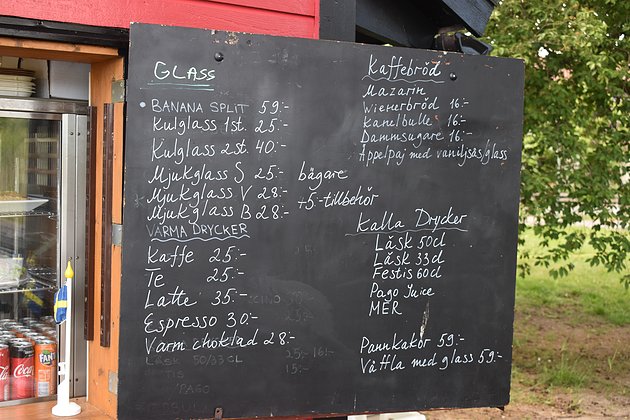 GLASS
BANANA SPLIT 59:-
Kulglass 1st. 25:-
Kulglass 2st. 40:-
Mjukglass S 25:- bägare
Mjukglass V 28:-
Mjukglass B 28:- +5:-tillbehör
VARMA DRYCKER
Kaffe 25:-
Te 25:-
Latte 35:-
Espresso 30:-
Varm choklad 28:-
LÄSK 50/33 CL 25:- 16:-
15:-
PAGO
Kaffebröd
Mazarin
Wienerbröd 16:-
Kanelbulle 16:-
Dammsugare 16:-
Äppelpaj med vaniljsås/glass
Kalla Drycker
Läsk 50cl
Läsk 33cl
Festis 60cl
Pago Juice
MER
Pannkakor 59:-
Våffla med glass 59:-
Coca
FANT